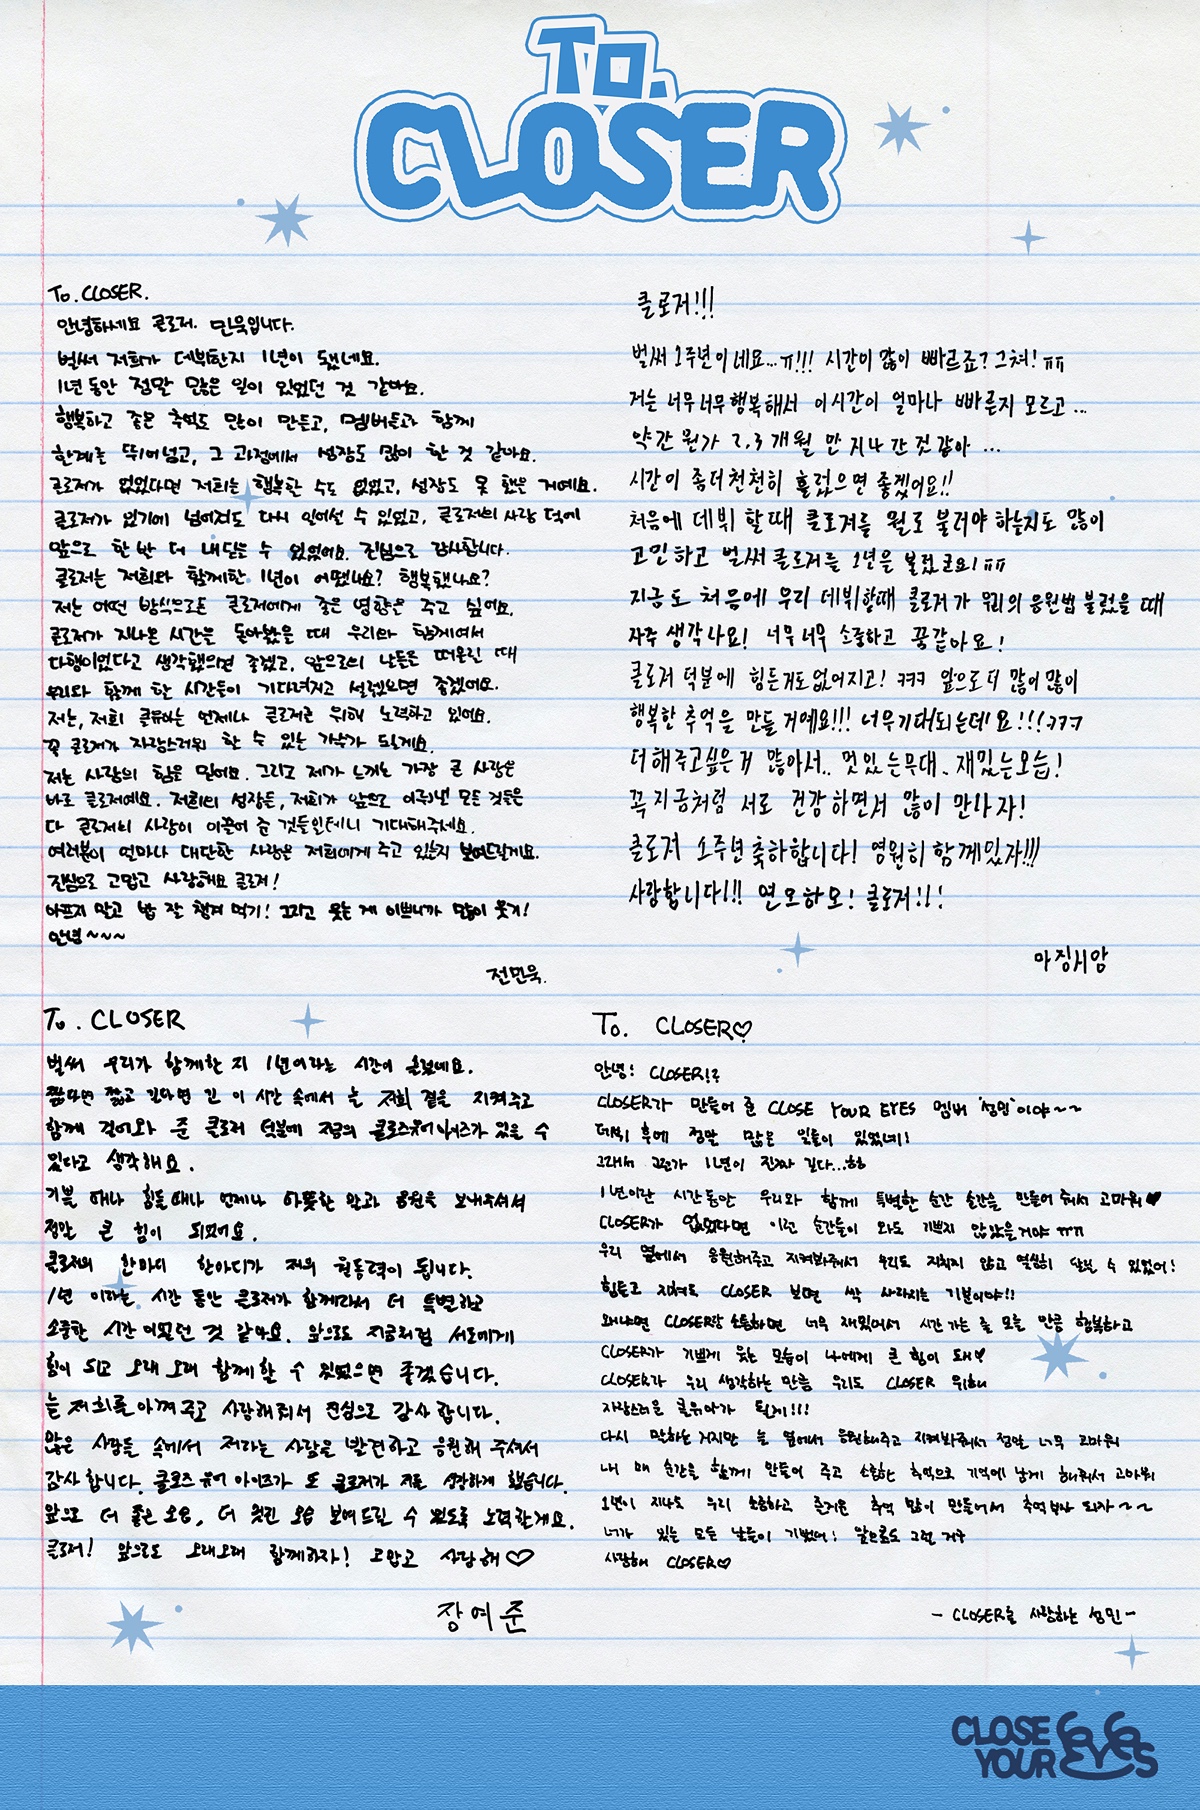 To.
CLOSER
To. CLOSER.
안녕하세요 클로저. 민욱입니다.
벌써 저희가 데뷔한지 1년이 됐네요.
1년 동안 정말 많은 일이 있었던 것 같아요.
행복하고 좋은 추억도 많이 만들고, 멤버들과 함께
한계를 뛰어넘고, 그 과정에서 성장도 많이 한 것 같아요.
클로저가 없었다면 저희는 행복할 수도 없었고, 성장도 못 했을 거예요.
클로저가 있기에 넘어져도 다시 일어설 수 있었고, 클로저의 사랑 덕에
앞으로 한 발 더 내딛을 수 있었어요. 진심으로 감사합니다.
클로저는 저희와 함께한 1년이 어땠나요? 행복했나요?
저는 어떤 방식으로든 클로저에게 좋은 영향을 주고 싶어요.
클로저가 지나온 시간을 돌아봤을 때 우리와 함께여서
다행이었다고 생각했으면 좋겠고, 앞으로의 나날을 떠올릴 때
우리와 함께 할 시간들이 기다려지고 설렜으면 좋겠어요.
저는, 저희 클유아는 언제나 클로저를 위해 노력하고 있어요.
꼭 클로저가 자랑스러워 할 수 있는 가수가 될게요.
저는 사랑의 힘을 믿어요. 그리고 제가 느끼는 가장 큰 사랑은
바로 클로저예요. 저희의 성장도, 저희가 앞으로 이뤄낼 모든 것들은
다 클로저의 사랑이 이끌어 준 것들일테니 기대해주세요.
여러분이 얼마나 대단한 사랑을 저희에게 주고 있는지 보여드릴게요.
진심으로 고맙고 사랑해요 클로저!
아프지 말고 밥 잘 챙겨 먹기! 그리고 웃는 게 이쁘니까 많이 웃기!
안녕~~~
전민욱.
클로저!!!
벌써 1주년이네요...ㅠ!!! 시간이 많이 빠르죠? 그쵸! ㅠㅠ
저는 너무너무행복해서 이시간이 얼마나 빠른지 모르고...
약간 뭔가 2,3개월 만 지나간것같아...
시간이 좀더천천히 흘렀으면 좋겠어요!!
처음에 데뷔 할때 클로저를 뭘로 불러야 하는지도 많이
고민하고 벌써클로저를 1년을 불렀군요! ㅠㅠ
지금도 처음에 우리 데뷔할때 클로저가 우리의 응원법 불렀을 때
자주 생각나요! 너무너무 소중하고 꿈같아요!
클로저 덕분에 힘든거도없어지고! ㅋㅋㅋ 앞으로더 많이많이
행복한 추억을 만들 거예요!!! 너무기대되는데요!!!ㅋㅋㅋ
더해주고싶은거 많아서.. 멋있는무대.. 재밌는모습!
꼭 지금처럼 서로 건강하면서 많이 만나자!
클로저 1주년축하합니다! 영원히함께있자!!!
사랑합니다!!! 연모하오! 클로저!!!
마징시앙
To. CLOSER
벌써 우리가 함께한 지 1년이라는 시간이 흘렀네요.
짧다면 짧고 길다면 긴 이 시간 속에서 늘 저희 곁을 지켜주고
함께 걸어와 준 클로저 덕분에 지금의 클로즈유어아이즈가 있을 수
있다고 생각해요.
기쁠 때나 힘들때나 언제나 따뜻한 말과 응원을 보내주셔서
정말 큰 힘이 되었어요.
클로저의 한마디 한마디가 저의 원동력이 됩니다.
1년 이라는 시간 동안 클로저가 함께라서 더 특별하고
소중한 시간이었던 것 같아요. 앞으로도 지금처럼 서로에게
힘이 되고 오래 오래 함께할 수 있었으면 좋겠습니다.
늘 저희를아껴 주고 사랑해줘서 진심으로 감사 합니다.
많은 사람들 속에서 저라는 사람을 발견하고 응원해 주셔서
감사 합니다. 클로즈 유어 아이즈가 또 클로저가 저를 성장하게 했습니다.
앞으로 더 좋은 모습, 더 멋진 모습 보여드릴 수 있도록 노력할게요.
클로저! 앞으로도 오래오래 함께하자! 고맙고 사랑해♡
장여준
To. CLOSER♡
안녕! CLOSER!?
CLOSER가 만들어 준 CLOSE YOUR EYES 멤버 '성민'이야~~
데뷔 후에 정말 많은 일들이 있었네!
그래서 그런가 1년이 진짜 길다...ㅎㅎ
1년이란 시간동안 우리와 함께 특별한 순간 순간을 만들어 줘서 고마워♥
CLOSER가 없었다면 이런 순간들이 와도 기쁘지 않았을거야 ㅠㅠ
우리 옆에서 응원해주고 지켜봐줘서 우리도 지치지 않고 열심히 달릴 수 있었어!
힘들고 지쳐도 CLOSER 보면 싹 사라지는 기분이야!!
왜냐면 CLOSER랑 소통하면 너무 재밌어서 시간 가는 줄 모를 만큼 행복하고
CLOSER가 기쁘게 웃는 모습이 나에게 큰 힘이 돼♡
CLOSER가 우리 생각하는 만큼 우리도 CLOSER 위해
자랑스러운 클유아가 될게!!!
다시 말하는거지만 늘 옆에서 응원해주고 지켜봐줘서 정말 너무 고마워
내 매 순간을 함께 만들어 주고 소중한 추억으로 기억에 남게 해줘서 고마워
1년이 지나도 우리 소중하고 즐거운 추억 많이 만들어서 추억부자 되자~~
너가 있는 모든 날들이 기뻤어! 앞으로도 그럴 거구
사랑해 CLOSER♡
- CLOSER를 사랑하는 성민-
CLOSE
YOUR EYES